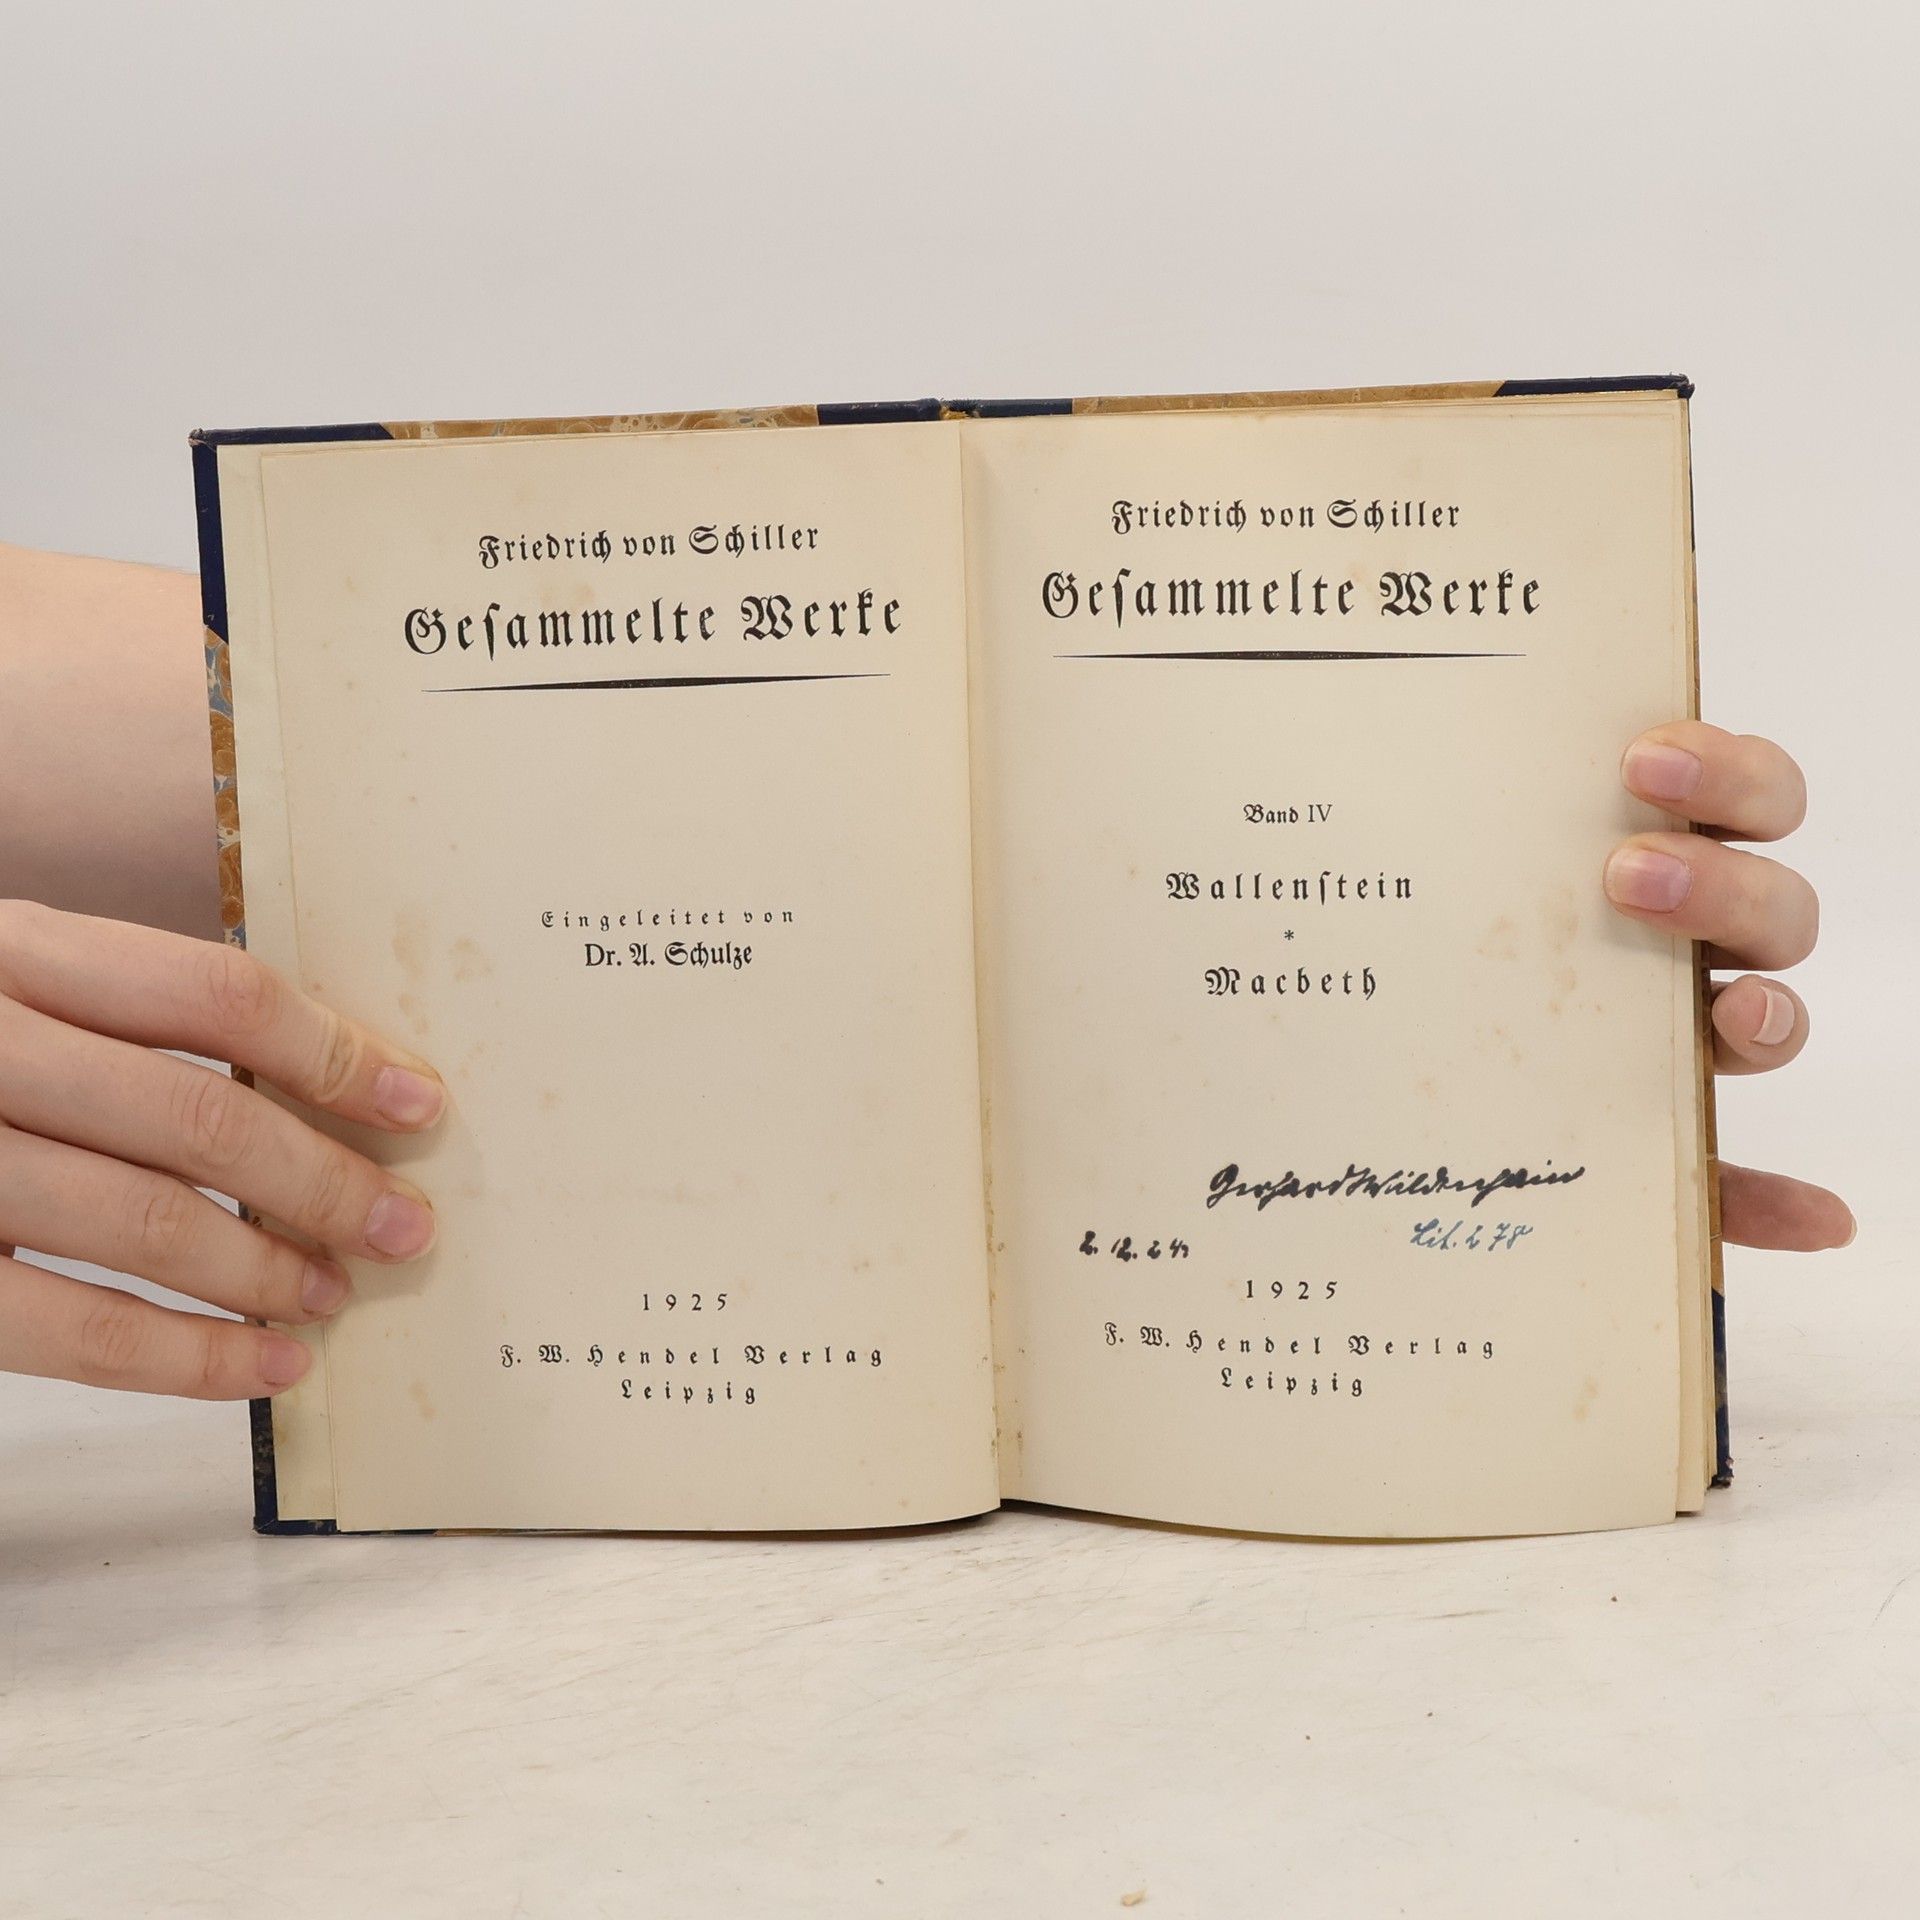 Friedrich von Schiller
Geſammelte Werke
Eingeleitet von
Dr. A. Schulze
1925
F. W. Hendel Verlag
Leipzig
Friedrich von Schiller
Geſammelte Werke
Band IV
Wallenſtein
*
Macbeth
Gerhard Wildenhain
2. 12. 24
Lit. 278
1925
F. W. Hendel Verlag
Leipzig